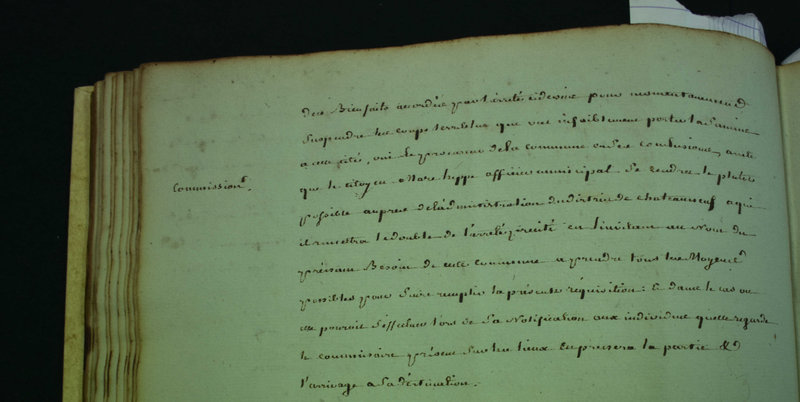 des Bienfaits accordée par l'arrêté cidessus pour momentanement
Suspendre les coups terribles que vas infailliblement porter la famine
a cette cité, oui le procureur de la commune en ses conclusions, arrête
Commission.t
que le citoyen officier municipal se rendra le plutot
possible auprès de l'administration du district de chateauneuf a qui
il remettra le double de l'arrêté précité en l'invitant au Nom du
pressant Besoin de cette commune a prendre tous les Moyens
possibles pour faire remplir la présente réquisition : & dans le cas ou
elle pouroit s'effectuer lors de la Notification aux individus quelle regarde
le commissaire présent sur les lieux en pressera la partie &
l'arrivage a sa destination.